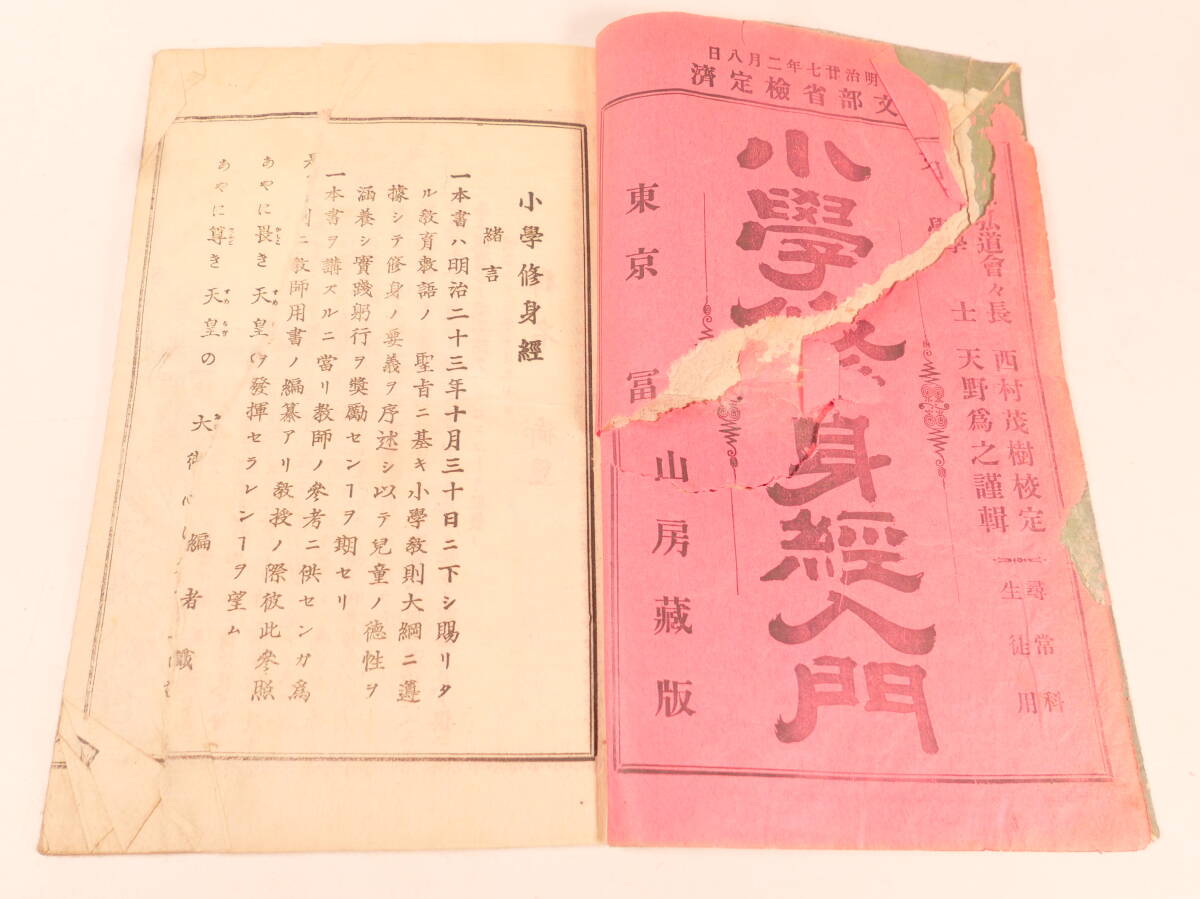 明治廿七年二月八日
文部省檢定濟
弘道會々長 西村茂樹校定
學士 天野爲之謹輯
尋常科
生徒用
小學修身經入門
東京 冨山房藏版
小學修身經
緒言
一本書ハ明治二十三年十月三十日ニ下シ賜リタ
ル教育敕語ノ 聖旨ニ基キ小學教則大綱ニ遵
據シテ修身ノ要義ヲ序述シ以テ兒童ノ德性ヲ
涵養シ實踐躬行ヲ奬勵センヿヲ期セリ
一本書ヲ講ズルニ當リ教師ノ參考ニ供センガ爲
ニ教師用書ノ編纂アリ教授ノ際彼此參照
ヲ發揮セラレンヿヲ望ム
あやに長き 天皇
あやに尊き 天皇の 大御
編者識